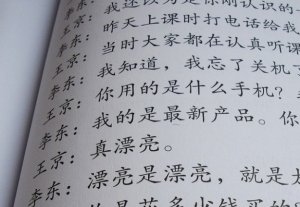 我还以为是你刚认识的
李东：昨天上课时打电话给我
王京：当时大家都在认真听课
李东：我知道，我忘了关机
王京：你用的是什么手机？
李东：我的是最新产品。你
王京：真漂亮。
李东：漂亮是漂亮，就是
是花多少钱买的